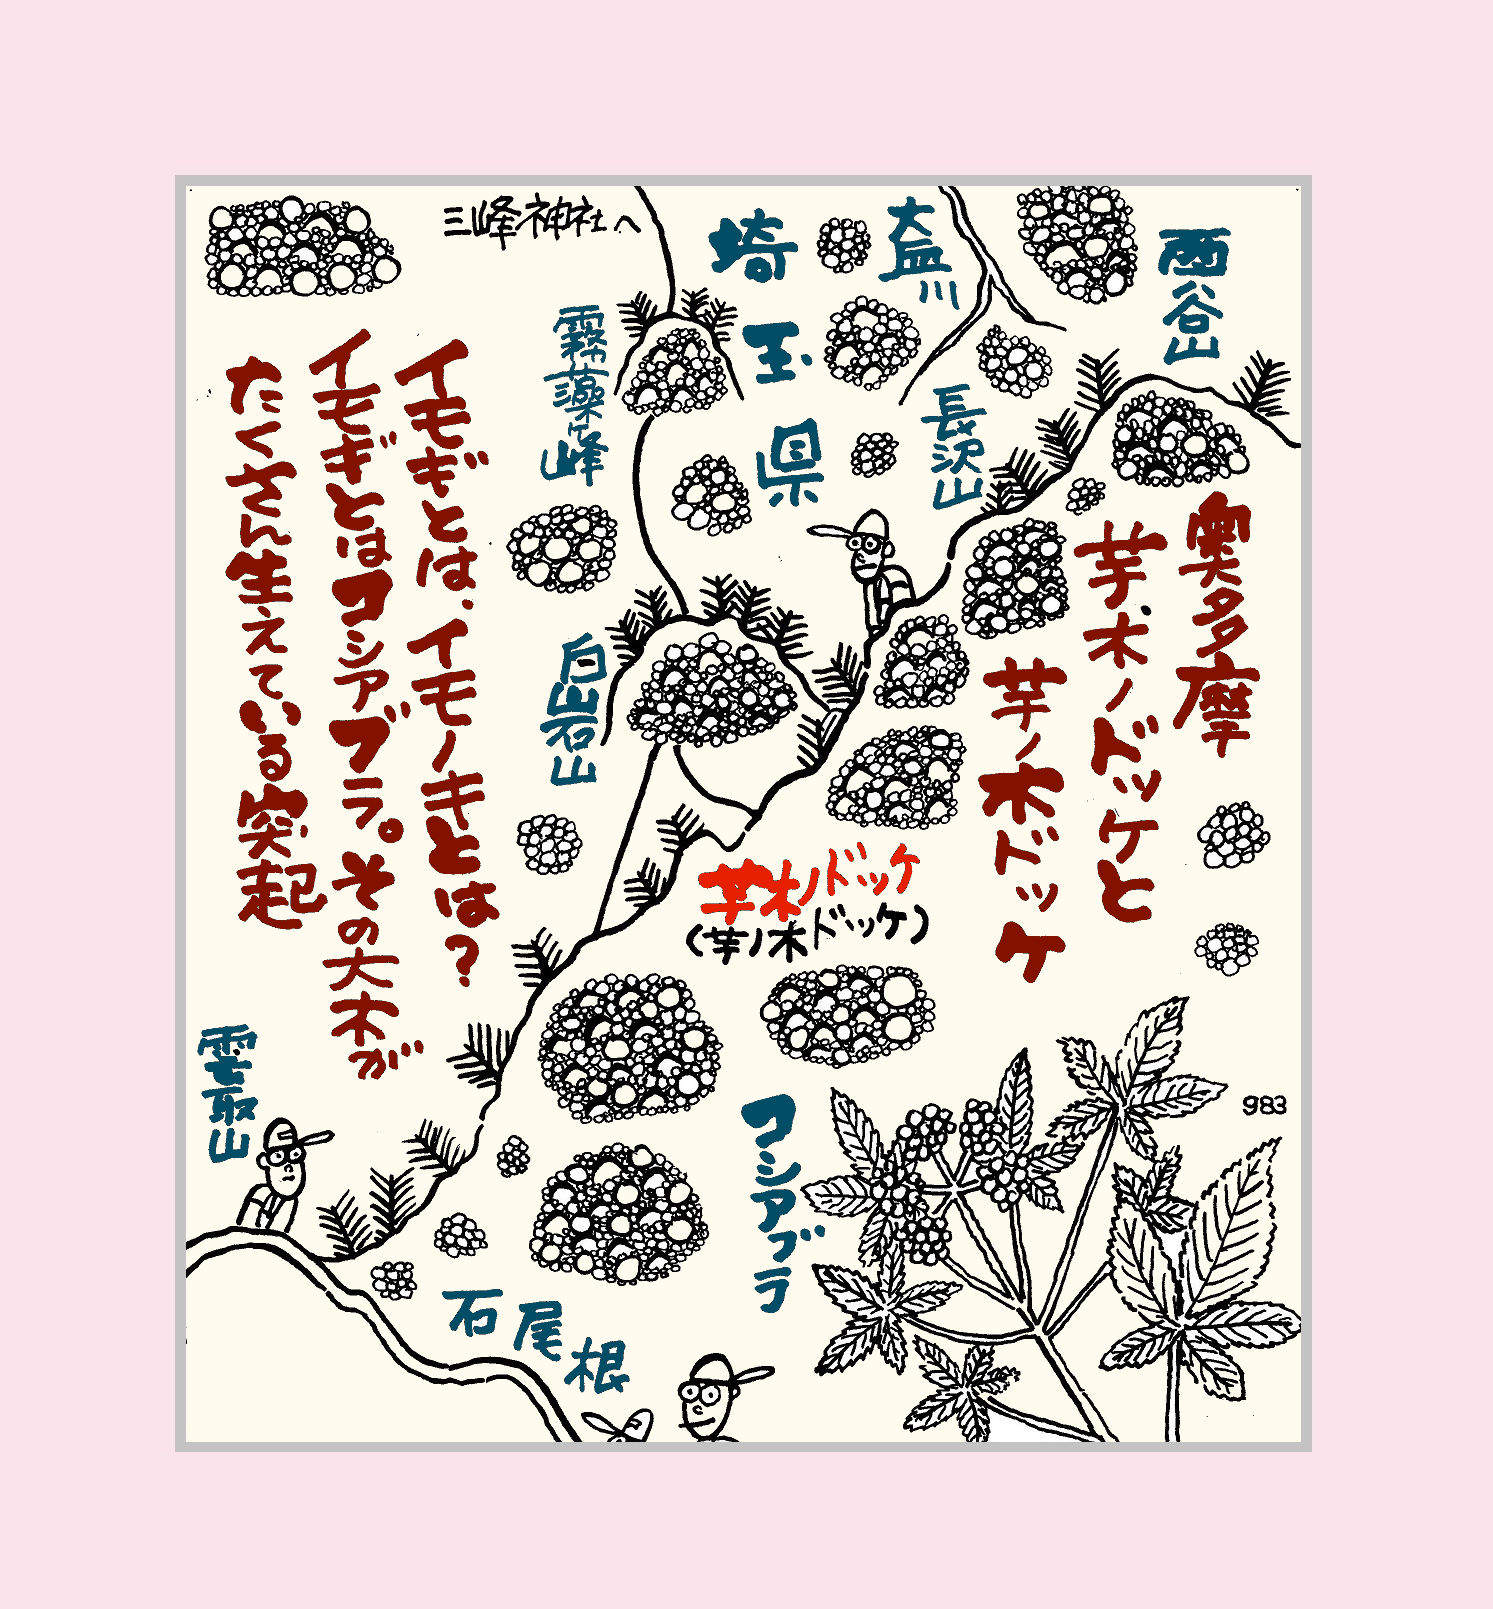 奥多摩
芋木ノドッケと
芋ノ木ドッケ
イモギとは、イモノキとは?
イモギとはコシアブラ。その大木が
たくさん生えている突起
三峰神社へ
埼玉県
大血川
酉谷山
長沢山
霧藻ヶ峰
白岩山
芋木ノドッケ
(芋ノ木ドッケ)
雲取山
石尾根
コシアブラ
983